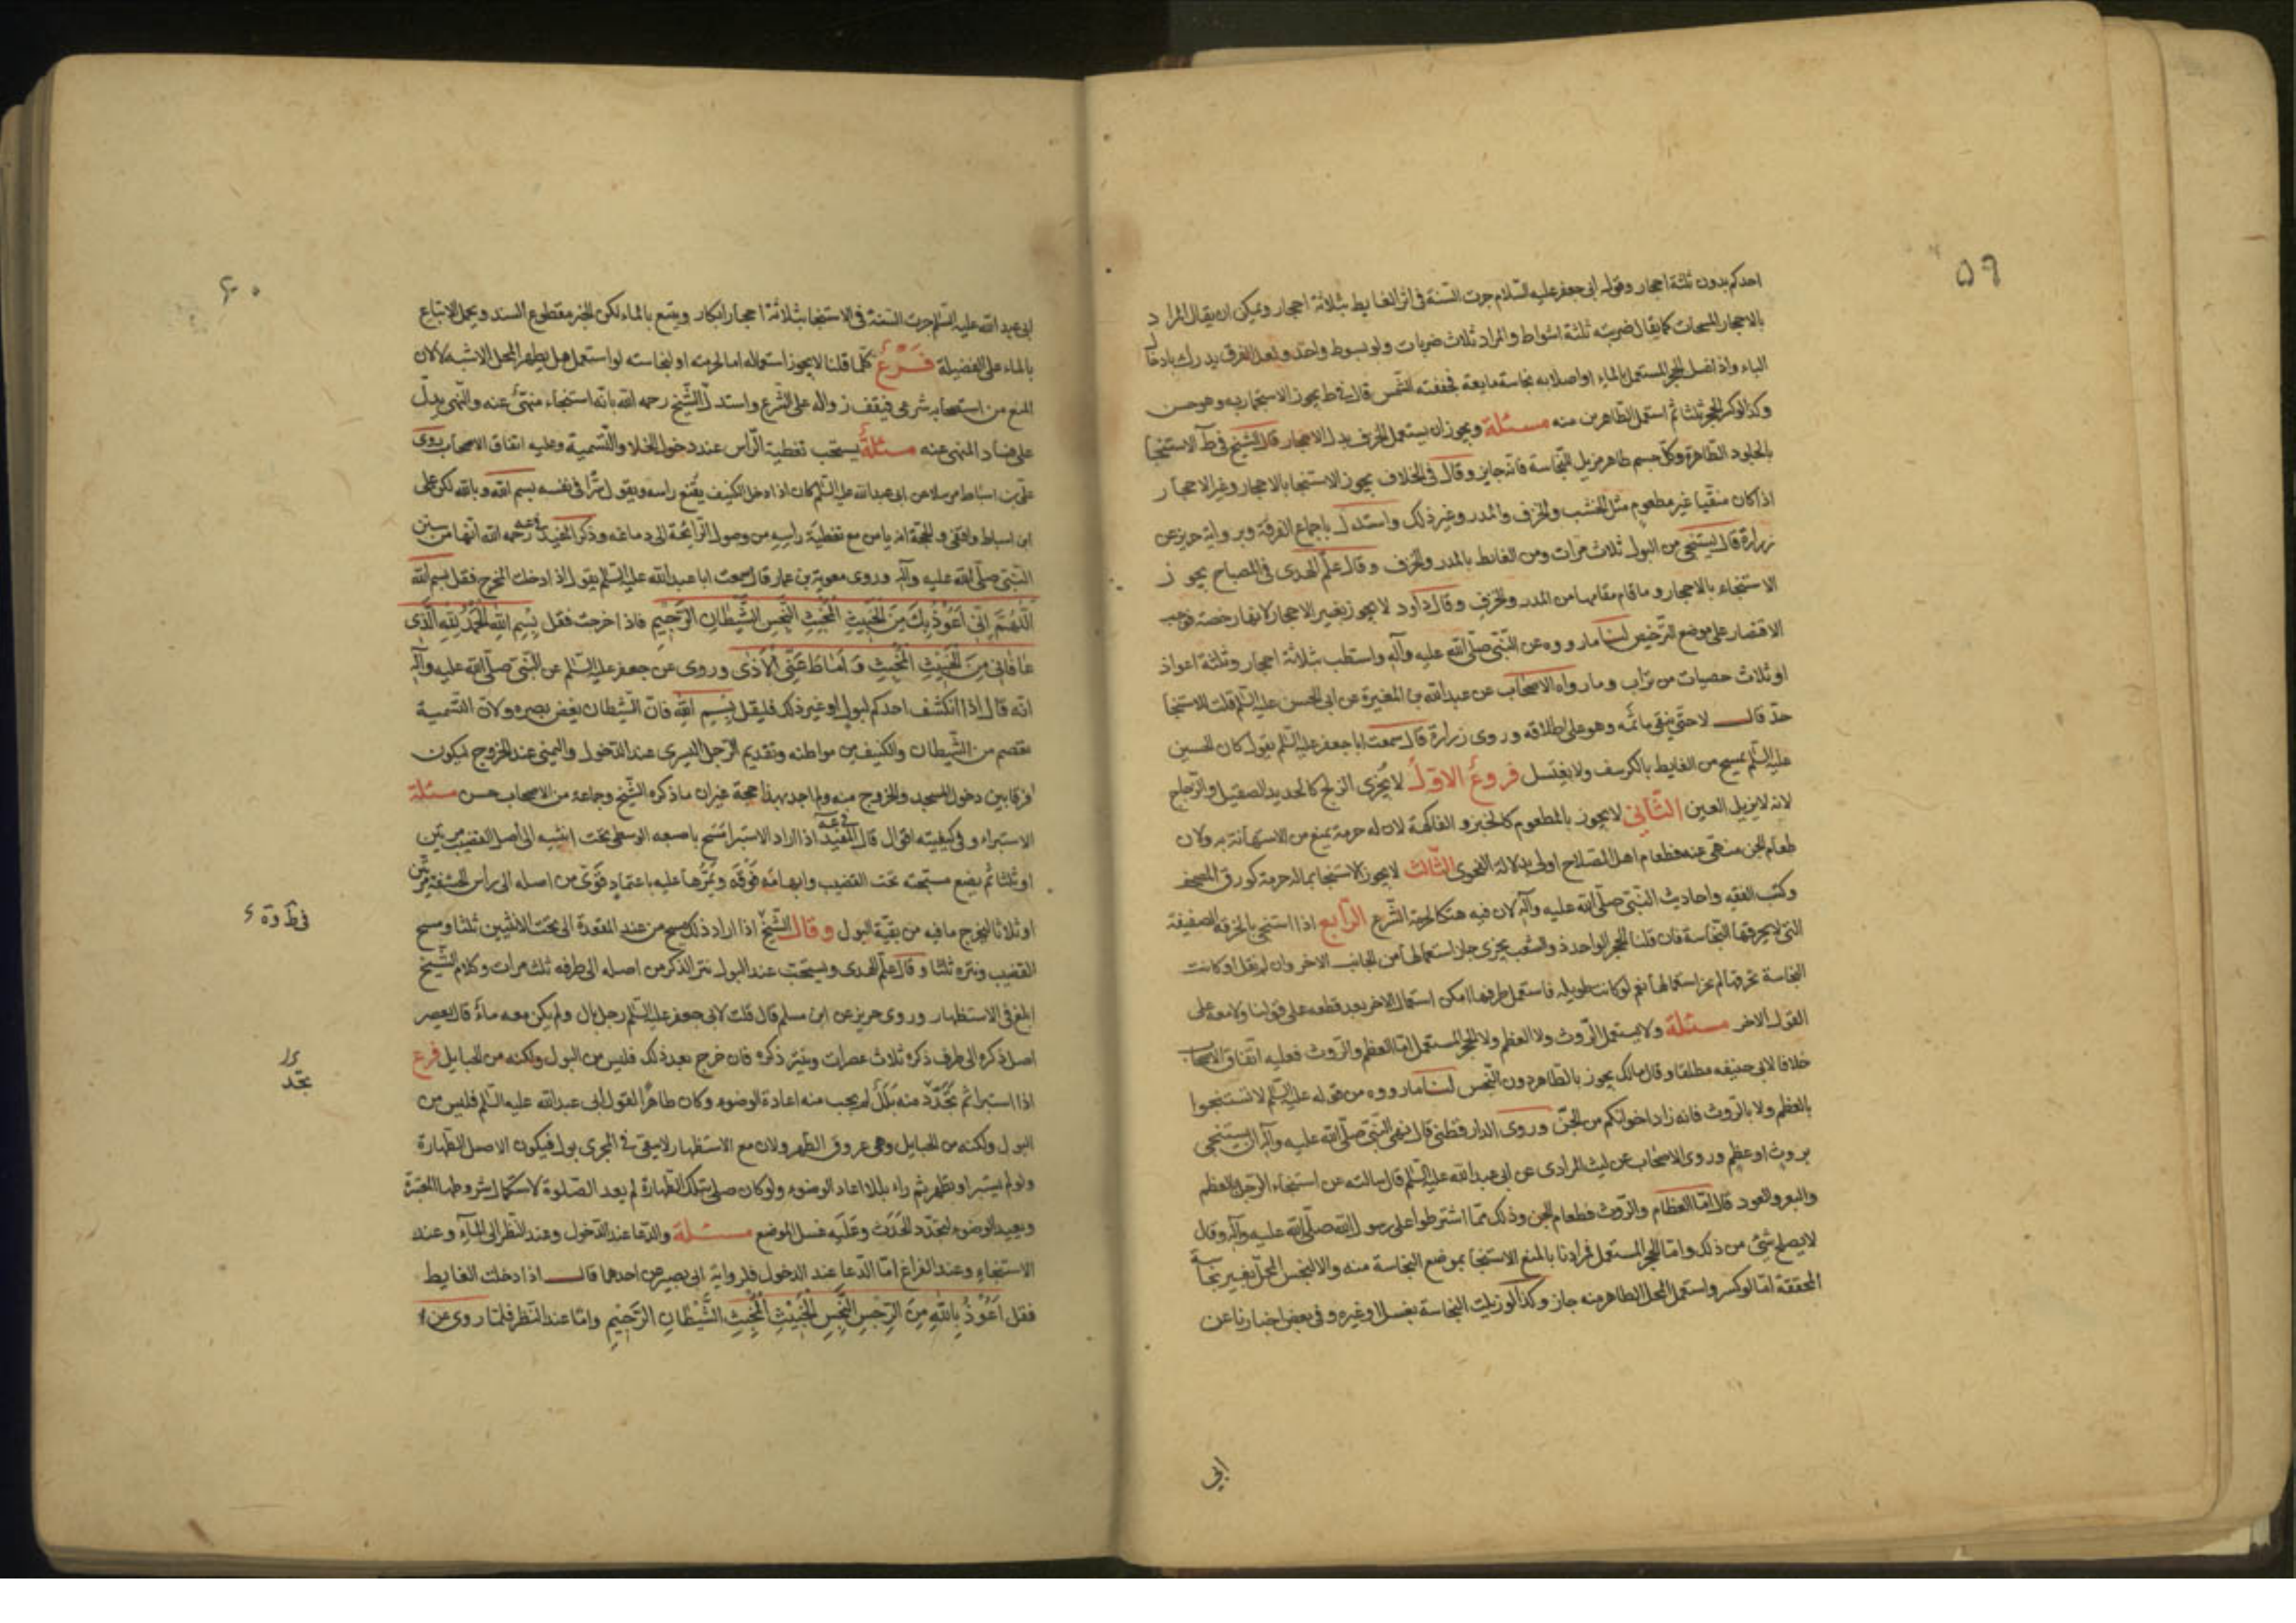 ٥٩
احدكم بدون ثلثة احجار وقول ابى جعفر عليه السلام جرت السنة فى اثر الغايط بثلاثة احجار ويمكن ان يقال المراد
بالاحجار المسحات كما يقال ضربته ثلثة اسواط والمراد ثلاث ضربات ولو بسوط واحد ولعل الفرق يدرك بادخال
الباء واذا غسل الحجر المستعمل بالماء او اصلابه نجاسة مايعة فجففته الشمس قال فى ط يجوز الاستجمار به وهو حسن
وكذا لو كر الحجر ثلثا ثم استعمل الطاهر من منه مسئلة ويجوز ان يستعمل الخزف بدل الاحجار قال الشيخ فى ط الاستنجا
بالجلود الطاهرة وكل جسم طاهر مزيل للنجاسة فانه جايز وقال فى الخلاف يجوز الاستنجا بالاحجار وغير الاحجار
اذا كان منقيا غير مطعوم مثل الخشب والخزف والمدر وغير ذلك واستدل باجماع الفرقة وبرواية حريز عن
زرارة قال يستنجى من البول ثلاث مرات ومن الغائط بالمدر والخزف وقال علم الهدى فى المصباح يجوز
الاستنجاء بالاحجار وما قام مقامها من المدر والخزف وقال داود لا يجوز بغير الاحجار لانها رخصة فوجب
الاقتصار على موضع الترخيص لنا ما رووه عن النبى صلى الله عليه وآله واستطب بثلاثة احجار وثلثة اعواد
او ثلاث حصيات من تراب وما رواه الاصحاب عن عبد الله بن المغيرة عن ابى الحسن عليه السلم قلت للاستنجا
حد قال لا حتى ينقى مائمه وهو على اطلاقه وروى زرارة قال سمعت ابا جعفر عليه السلم يقول كان الحسين
عليه السلم يمسح من الغايط بالكرسف ولا يغتسل فروع الاول لا يجزى الزلج كالحديد الصقيل والزجاج
لانه لا يزيل العين الثانى لا يجوز بالمطعوم كالخبز والفاكهة لان له حرمة يمنع من الاستهانة به ولان
طعام الجن منهى عنه فطعام اهل الصلاح اولى بدلالة الفحوى الثالث لا يجوز الاستنجا بماله حرمة كورق المصحف
وكتب الفقه واحاديث النبى صلى الله عليه وآله لان فيه هتكا لحرمة الشرع الرابع اذا استنجى بالخرقة الصفيقة
التى لا يخرقها النجاسة فان قلنا الحجر الواحد ذو الشعب يجزى جاز استعمالها من الجانب الاخر وان لم نقل او كانت
النجاسة تخرقها لم يجز استعمالها نعم لو كانت طويله فاستعمل طرفها امكن استعمال الاخر بعد قطعه على قولنا ولا معه على
القول الاخر مسئلة ولا يستعمل الروث ولا العظم ولا الحجر المستعمل اما العظم والروث فعليه اتفاق الاصحاب
خلافا لابى حنيفه مطلقا وقال مالك يجوز بالطاهر دون النجس لنا ما رووه من قوله عليه السلم لا تستنجوا
بالعظم ولا بالروث فانه زاد اخوانكم من الجن وروى الدارقطنى قال نهى النبى صلى الله عليه وآله ان يستنجى
بروث او عظم وروى الاصحاب عن ليث المرادى عن ابى عبد الله عليه السلم قال سالته عن استنجاء الرجل بالعظم
والبعر والعود قال اما العظام والروث فطعام الجن وذلك مما اشترطوا على رسول الله صلى الله عليه وآله وقال
لا يصلح شئ من ذلك واما الحجر المستعمل فمرادنا بالمنع الاستنجا بموضع النجاسة منه والا لنجس المحل بغير نجاسة
المحققة اما لو كسر واستعمل المحل الطاهر منه جاز وكذا لو زيلت النجاسة بغسل او غيره وفى بعض اخبارنا عن
ابى
٦٠
ابى عبد الله عليه السلم جرت السنة فى الاستنجا بثلاثة احجار ابكار ويتبع بالماء لكن الخبر مقطوع السند ويحمل الاتباع
بالماء على الفضيلة فرع كلما قلنا لا يجوز استعماله اما لحرمته او لنجاسته لو استعمل هل يطهر المحل الاشبه لا لان
المنع من استصحابه شرعى فيقف زواله على الشرع واستدل الشيخ رحمه الله بانه استنجاء منهى عنه والنهى يدل
على فساد المنهى عنه مسئلة يستحب تغطية الراس عند دخول الخلا والتسمية وعليه اتفاق الاصحاب روى
على بن اسباط مرسلا عن ابى عبد الله عليه السلم كان اذا دخل الكنيف يقنع راسه ويقول سرا فى نفسه بسم الله وبالله لكن على
ابن اسباط واقفى والحجة انه يامن مع تغطية راسه من وصول الرائحة الى دماغه وذكر المفيد رحمه الله انها من سنن
النبى صلى الله عليه وآله وروى معوية بن عمار قال سمعت ابا عبد الله عليه السلم يقول اذا دخلت المخرج فقل بسم الله
اللهم انى اعوذ بك من الخبيث المخبث النجس الشيطان الرجيم فاذا خرجت فقل بسم الله الحمد لله الذى
عافانى من الخبيث المخبث واماط عنى الاذى وروى عن جعفر عليه السلم عن النبى صلى الله عليه وآله
انه قال اذا انكشف احدكم لبول او غير ذلك فليقل بسم الله فان الشيطان يغض بصره ولان التسمية
تعصم من الشيطان والكنيف من مواطنه وتقديم الرجل اليسرى عند الدخول واليمنى عند الخروج ليكون
فرقا بين دخول المسجد والخروج منه ولم اجد بهذا حجة غير ان ما ذكره الشيخ وجماعة من الاصحاب حسن مسئلة
الاستبراء وفى كيفيته اقوال قال المفيد اذا اراد الاستبرا مسح باصبعه الوسطى تحت انثييه الى اصل القضيب مرتين
او ثلثا ثم يضع مسبحته تحت القضيب وابهامه فوقه ويمرها عليه باعتماد قوى من اصله الى رأس الحشفة مرتين
او ثلاثا ليخرج ما فيه من بقية البول وقال الشيخ اذا اراد ذلك مسح من عند المقعدة الى تحت الانثيين ثلثا ومسح
القضيب ونتره ثلثا وقال علم الهدى ويستحب عند البول نتر الذكر من اصله الى طرفه ثلث مرات وكلام الشيخ
ابلغ فى الاستظهار وروى حريز عن ابن مسلم قال قلت لابى جعفر عليه السلم رجل بال ولم يكن معه ماء قال يعصر
اصل ذكره الى طرف ذكره ثلاث عصرات وينتر ذكره فان خرج بعد ذلك فليس من البول ولكنه من الحبايل فرع
اذا استبرا ثم تجدد منه بلل لم يجب منه اعادة الوضوء وكان طاهرا لقول ابى عبد الله عليه السلم فليس من
البول ولكنه من الحبايل وهى عروق الظهر ولان مع الاستظهار لا يبقى فى المجرى بول فيكون الاصل الطهارة
ولو لم يستبرا وتطهر ثم راه بللا اعاد الوضوء ولو كان صلى بتلك الطهارة لم يعد الصلوة لاستكمال شروطها المعتبرة
ويعيد الوضوء لتجدد الحدث وعليه غسل الموضع مسئلة والدعا عند الدخول وعند النظر الى الماء وعند
الاستنجاء وعند الفراغ اما الدعا عند الدخول فلرواية ابى بصير عن احدهما قال اذا دخلت الغايط
فقل اعوذ بالله من الرجس النجس الخبيث المخبث الشيطان الرجيم واما عند النظر فلما روى عن
فى ط وة
تجدد